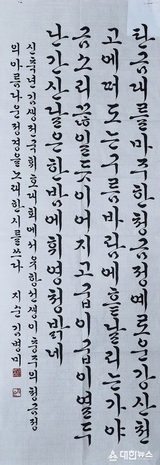 탄금대를마주한청금정예로운강산천
고에떠도는구름바람에흩날리는가야
금소리끊일듯이어지고굽이굽이열두
난간 은한밤에휘영청밝네
신축년김생전국휘호대회에서 선생이충주의청금정
의아름다운정경을노래한시를쓰다 김명미
대한뉴스